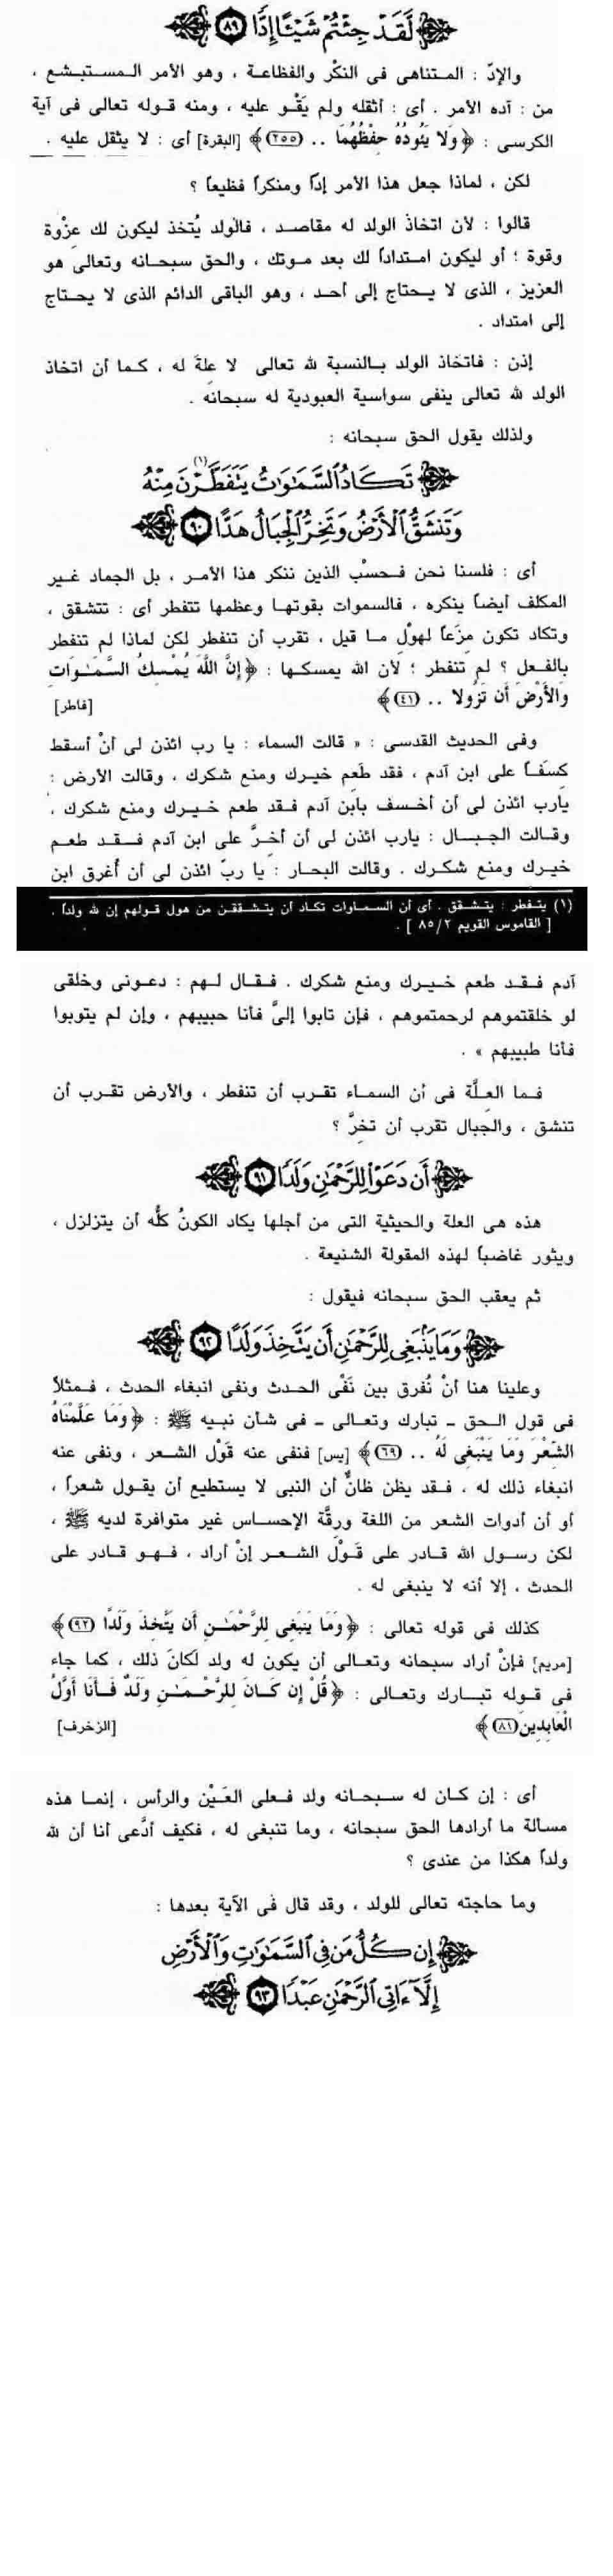 لَقَدْ جِئْتُمْ شَيْئًا إِدًّا ٨٩
والإدّ : المتناهى فى النكْر والفظاعة ، وهو الأمر المستبشع ،
من : آده الأمر . أى : أثقله ولم يَقْو عليه ، ومنه قوله تعالى فى آية
الكرسى : ﴿ وَلَا يَئُودُهُ حِفْظُهُمَا .. (٢٥٥) ﴾ [البقرة] أى : لا يثقل عليه .
لكن ، لماذا جعل هذا الأمر إدّاً ومنكراً فظيعاً ؟
قالوا : لأن اتخاذَ الولد له مقاصد ، فالولد يُتخذ ليكون لك عِزْوة
وقوة ؛ أو ليكون امتداداً لك بعد موتك ، والحق سبحانه وتعالى هو
العزيز ، الذى لا يحتاج إلى أحد ، وهو الباقى الدائم الذى لا يحتاج
إلى امتداد .
إذن : فاتخاذ الولد بالنسبة لله تعالى لا علةَ له ، كما أن اتخاذ
الولد لله تعالى ينفى سواسية العبودية له سبحانه .
ولذلك يقول الحق سبحانه :
تَكَادُ السَّمَٰوَٰتُ يَتَفَطَّرْنَ(١) مِنْهُ
وَتَنشَقُّ الْأَرْضُ وَتَخِرُّ الْجِبَالُ هَدًّا ٩٠
أى : فلسنا نحن فحسْب الذين ننكر هذا الأمر ، بل الجماد غير
المكلف أيضاً ينكره ، فالسموات بقوتها وعظمها تتفطر أى : تتشقق ،
وتكاد تكون مزَعاً لهوْل ما قيل ، تقرب أن تنفطر لكن لماذا لم تنفطر
بالفعل ؟ لم تنفطر ؛ لأن الله يمسكها : ﴿ إِنَّ اللَّهَ يُمْسِكُ السَّمَٰوَاتِ
وَالأَرْضَ أَن تَزُولا .. (٤١) ﴾ [فاطر]
وفى الحديث القدسى : « قالت السماء : يا رب ائذن لى أنْ أسقط
كسَفاً على ابن آدم ، فقد طَعِم خيرك ومنع شكرك ، وقالت الأرض :
يارب ائذن لى أن أخسف بابن آدم فقد طعم خيرك ومنع شكرك ،
وقالت الجبال : يارب ائذن لى أن أخرَّ على ابن آدم فقد طعم
خيرك ومنع شكرك . وقالت البحار : يا ربّ ائذن لى أن أُغرق ابن
(١) يتفطر : يتشقق . أى أن السماوات تكاد أن يتشققن من هول قولهم إن لله ولداً .
[ القاموس القويم ٨٥/٢ ] .
آدم فقد طعم خيرك ومنع شكرك . فقال لهم : دعونى وخلقى
لو خلقتموهم لرحمتموهم ، فإن تابوا إلىَّ فأنا حبيبهم ، وإن لم يتوبوا
فأنا طبيبهم » .
فما العلَّة فى أن السماء تقرب أن تنفطر ، والأرض تقرب أن
تنشق ، والجبال تقرب أن تخرَّ ؟
أَن دَعَوْا لِلرَّحْمَٰنِ وَلَدًا ٩١
هذه هى العلة والحيثية التى من أجلها يكاد الكونُ كلُّه أن يتزلزل ،
ويثور غاضباً لهذه المقولة الشنيعة .
ثم يعقب الحق سبحانه فيقول :
وَمَا يَنۢبَغِى لِلرَّحْمَٰنِ أَن يَتَّخِذَ وَلَدًا ٩٢
وعلينا هنا أنْ نُفرق بين نَفْى الحدث ونفى انبغاء الحدث ، فمثلاً
فى قول الحق - تبارك وتعالى - فى شأن نبيه ﷺ : ﴿ وَمَا عَلَّمْنَاهُ
الشِّعْرَ وَمَا يَنْبَغِى لَهُ .. (٦٩) ﴾ [يس] فنفى عنه قَوْل الشعر ، ونفى عنه
انبغاء ذلك له ، فقد يظن ظانٌّ أن النبى لا يستطيع أن يقول شعراً ،
أو أن أدوات الشعر من اللغة ورقَّة الإحساس غير متوافرة لديه ﷺ ،
لكن رسول الله قادر على قَوْل الشعر إنْ أراد ، فهو قادر على
الحدث ، إلا أنه لا ينبغى له .
كذلك فى قوله تعالى : ﴿ وَمَا يَنبَغِى لِلرَّحْمَٰنِ أَن يَتَّخِذَ وَلَدًا (٩٢) ﴾
[مريم] فإنْ أراد سبحانه وتعالى أن يكون له ولد لَكانَ ذلك ، كما جاء
فى قوله تبارك وتعالى : ﴿ قُلْ إِن كَانَ لِلرَّحْمَٰنِ وَلَدٌ فَأَنَا أَوَّلُ
الْعَابِدِينَ (٨١) ﴾ [الزخرف]
أى : إن كان له سبحانه ولد فعلى العَيْن والرأس ، إنما هذه
مسألة ما أرادها الحق سبحانه ، وما تنبغى له ، فكيف أدَّعى أنا أن لله
ولداً هكذا من عندى ؟
وما حاجته تعالى للولد ، وقد قال فى الآية بعدها :
إِن كُلُّ مَن فِى السَّمَٰوَٰتِ وَالْأَرْضِ
إِلَّآ ءَاتِى الرَّحْمَٰنِ عَبْدًا ٩٣